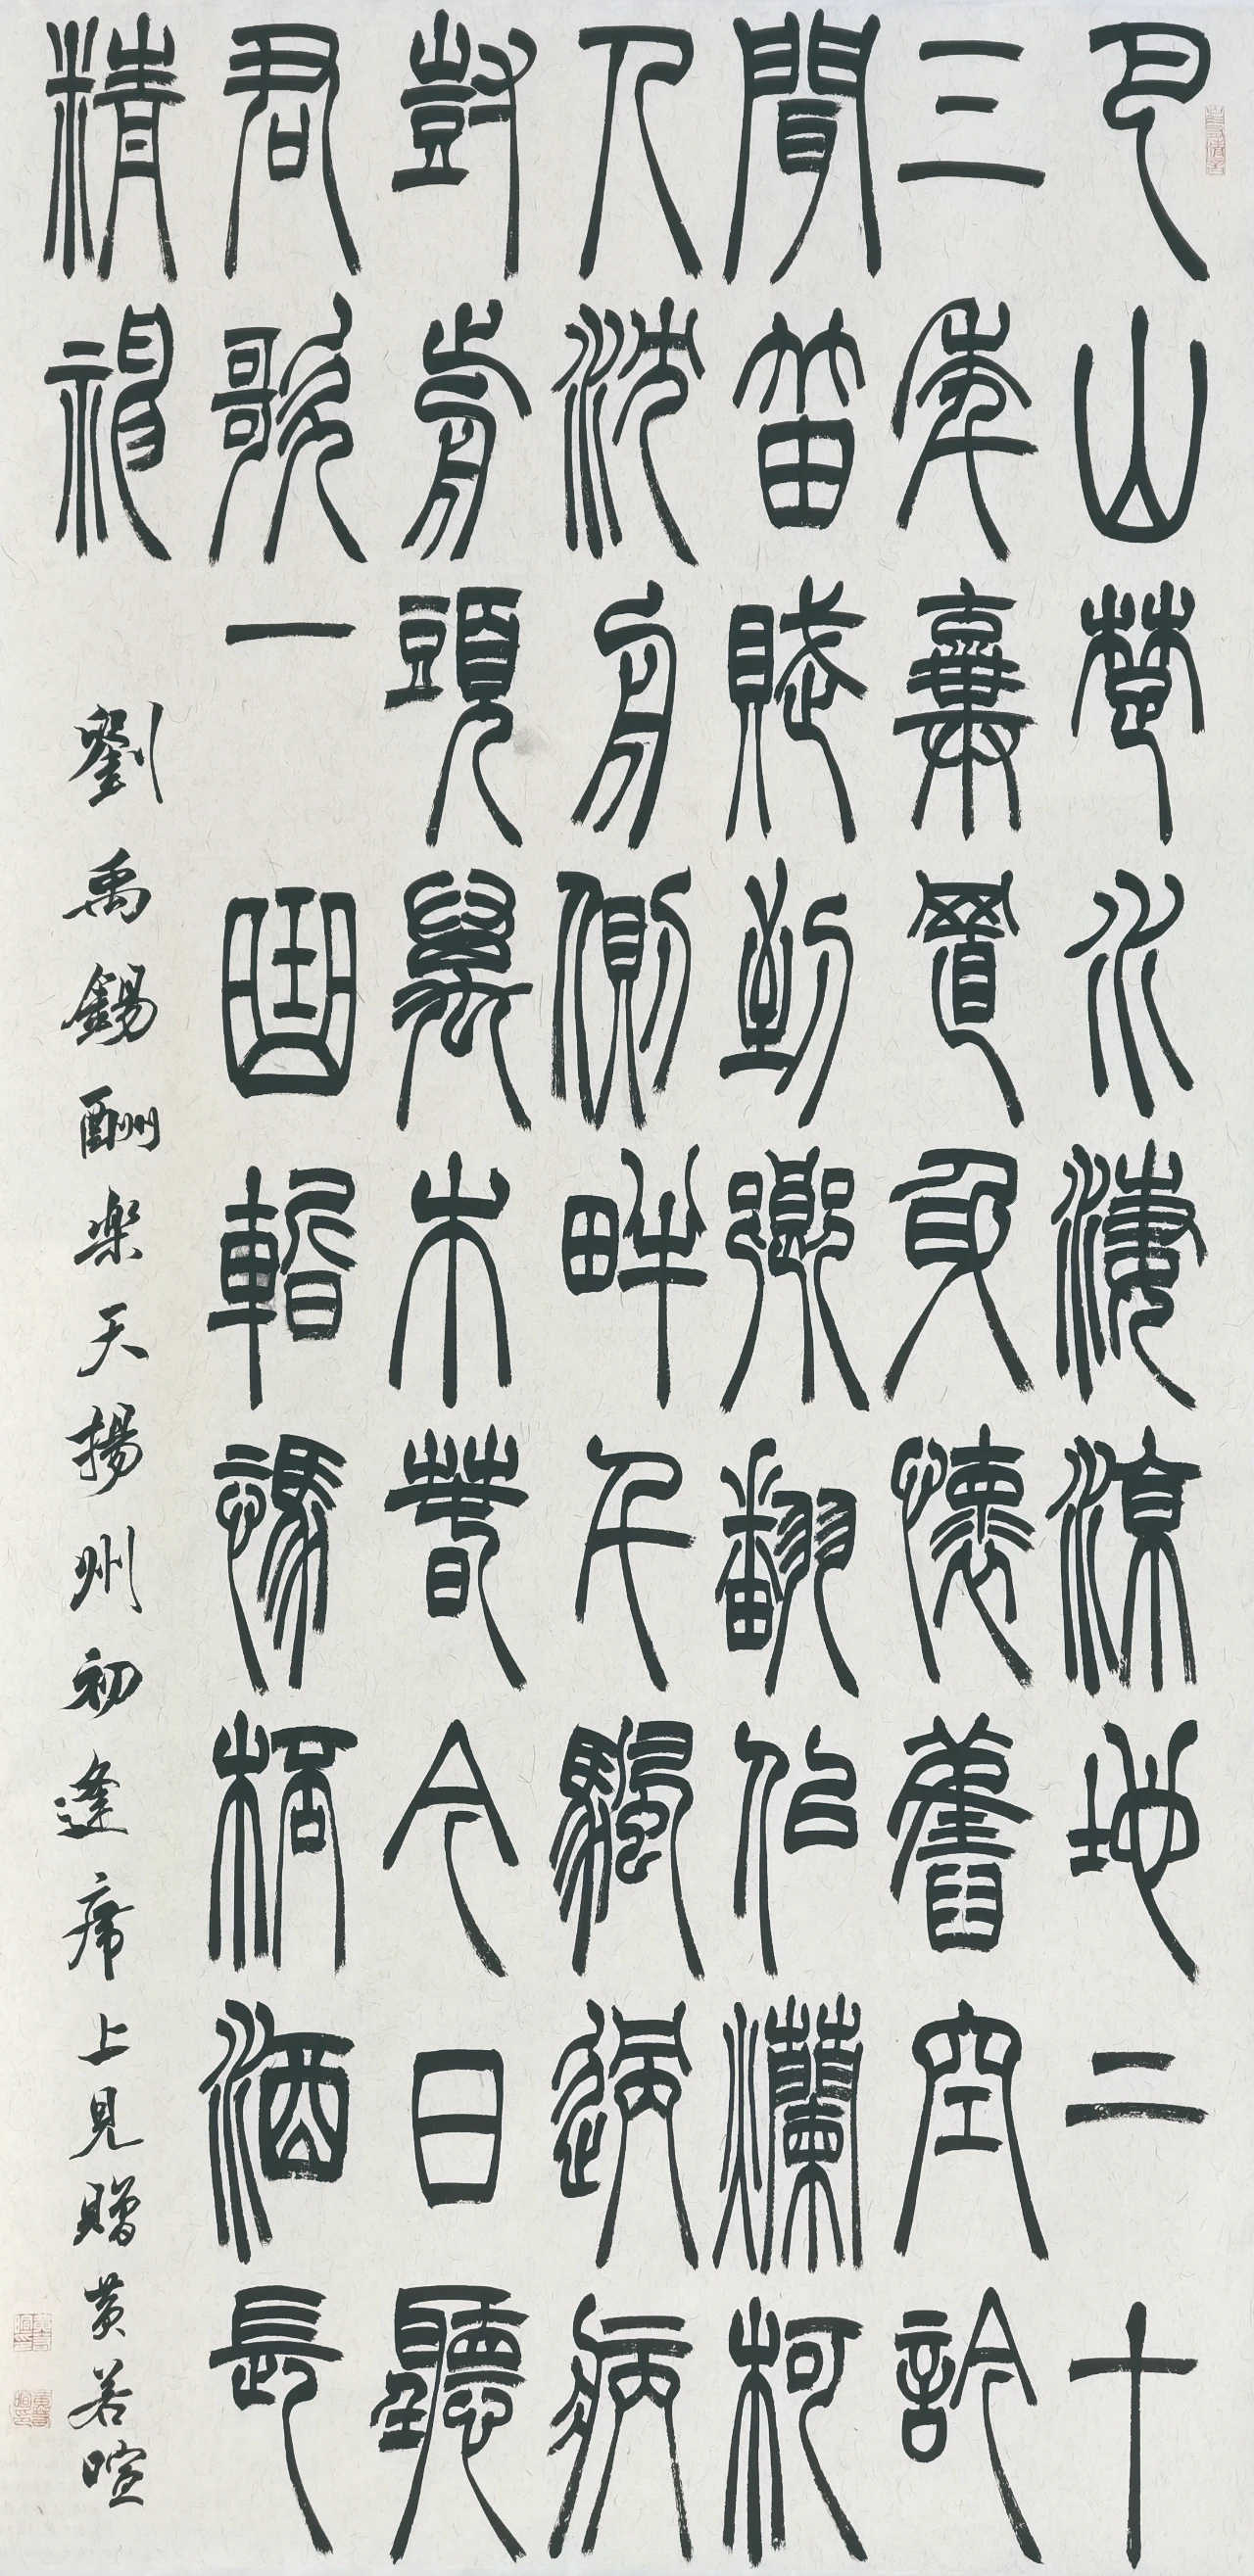 巴山楚水淒涼地二十
三年棄置身懷舊空訡
聞笛賦到鄉翻似爛柯
人沈舟側畔千颿過病
尌前頭萬木春今日聽
君歌一曲暫憑桮酒長
精神
劉禹錫酬楽天揚州初逢席上見贈 黄若暄